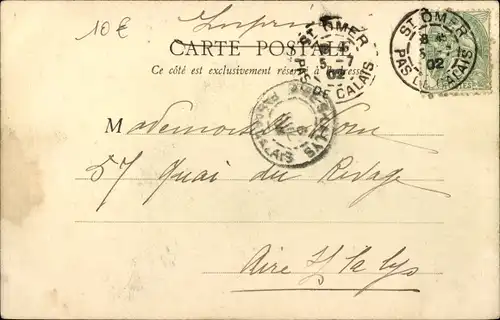 10€
CARTE POSTALE
Ce côté est exclusivement réservé à l'adresse.
ST OMER
5 -7
02
PAS DE CALAIS
ST OMER
8
5 -7
02
PAS DE CALAIS
PAS DE CALAIS
Mademoiselle
57 Quai du Rivage
Aire s/ la lys